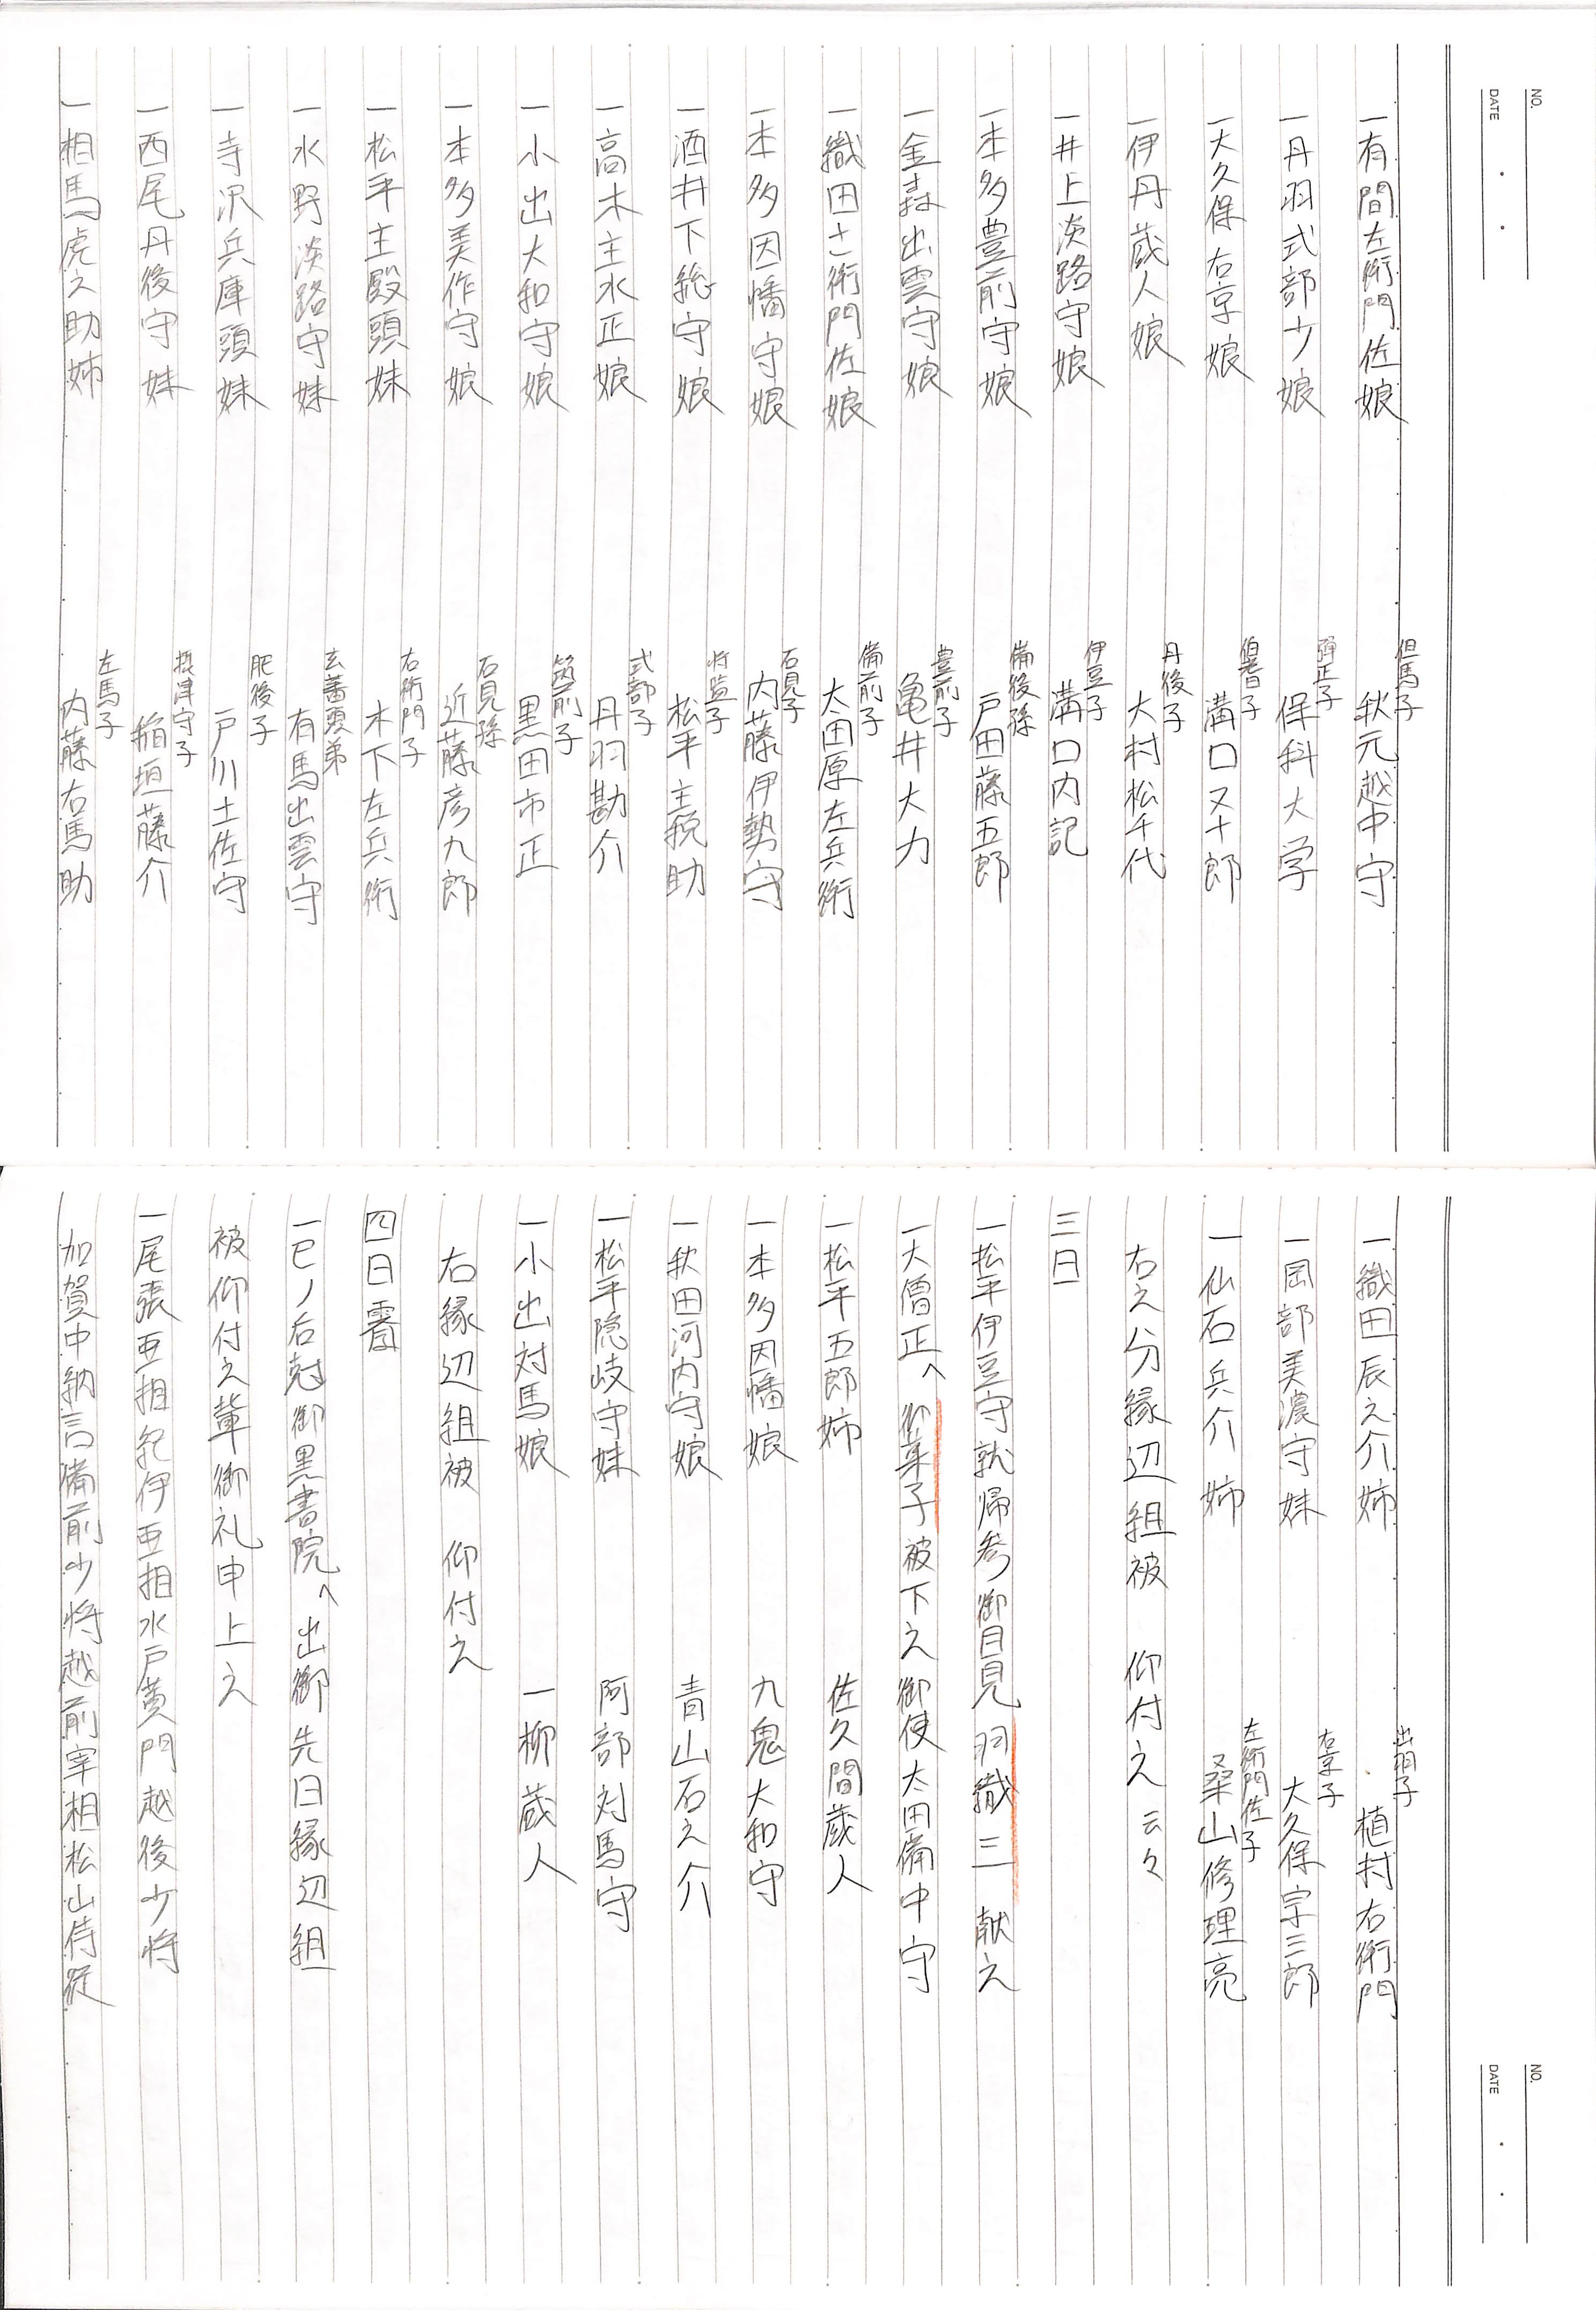 NO.
DATE
一有間左衛門佐娘 但馬子 秋元越中守
一丹羽式部少娘 弾正子 保科大学
一大久保右京娘 伯耆子 溝口又十郎
一伊丹蔵人娘 丹後子 大村松千代
一井上淡路守娘 伊豆子 溝口内記
一本多豊前守娘 備後孫 戸田藤五郎
一金森出雲守娘 豊前子 亀井大力
一織田さ衛門佐娘 備前子 太田原左兵衛
一本多因幡守娘 石見子 内藤伊勢守
一酒井下総守娘 将監子 松平主税助
一高木主水正娘 式部子 丹羽勘介
一小出大和守娘 筑前子 黒田市正
一本多美作守娘 石見孫 近藤彦九郎
一松平主殿頭妹 右衛門子 木下左兵衛
一水野淡路守妹 玄蕃頭弟 有馬出雲守
一寺沢兵庫頭妹 肥後子 戸川土佐守
一西尾丹後守妹 摂津守子 稲垣藤介
一相馬虎之助姉 左馬子 内藤右馬助
NO.
DATE
一織田辰之介姉 出羽子 植村右衛門
一岡部美濃守妹 右京子 大久保宗三郎
一仙石兵介姉 左衛門佐子 桑山修理亮
右之分縁辺組被 仰付之 云々
三日
一松平伊豆守就帰参御目見 羽織三 献之
一大僧正へ 御菓子被下之御使太田備中守
一松平五郎姉 佐久間蔵人
一本多因幡娘 九鬼大和守
一秋田河内守娘 青山石之介
一松平隠岐守妹 阿部対馬守
一小出対馬娘 一柳蔵人
右縁辺組被 仰付之
四日霽
一巳ノ后尅御黒書院へ出御先日縁辺組
被仰付之輩御礼申上之
一尾張亜相紀伊亜相水戸黄門越後少将
加賀中納言備前少将越前宰相松山侍従